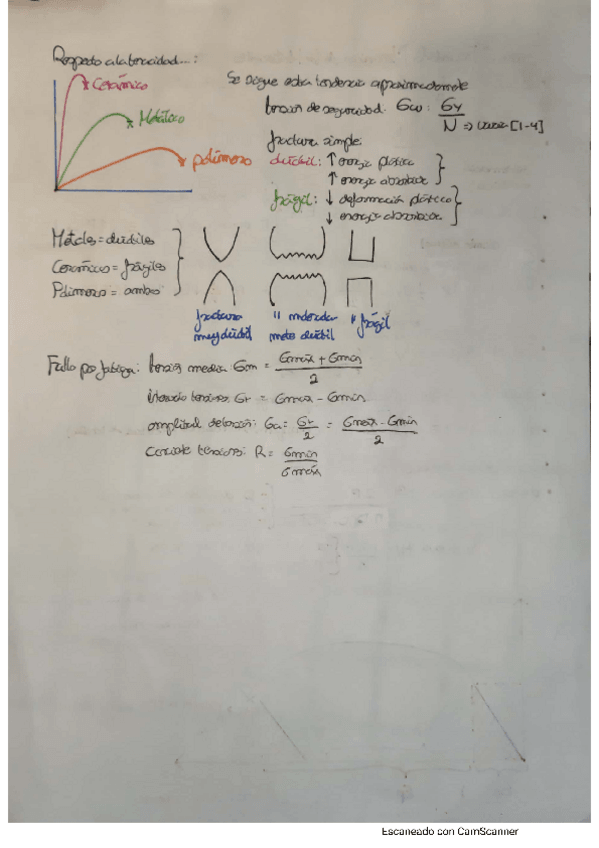 Respecto a la tenacidad...:
Cerámico
Metálico
polímero
Se sigue esta tendencia aproximadamente
tensión de seguridad: σw: σy / N => [1-4]
fractura simple:
dúctil: ↑ energía plástica
↑ energía absorbida
frágil: ↓ deformación plástica
↓ energía absorbida
Metales = dúctiles
Cerámicos = frágiles
Polímeros = ambos
fractura muy dúctil
" moderadamente dúctil
" frágil
Fallo por fatiga: tensión media σm = σmáx + σmín / 2
intervalo tensiones σr = σmáx - σmín
amplitud de tensión: σa = σr / 2 = σmáx - σmín / 2
cociente tensiones: R = σmín / σmáx
Escaneado con CamScanner